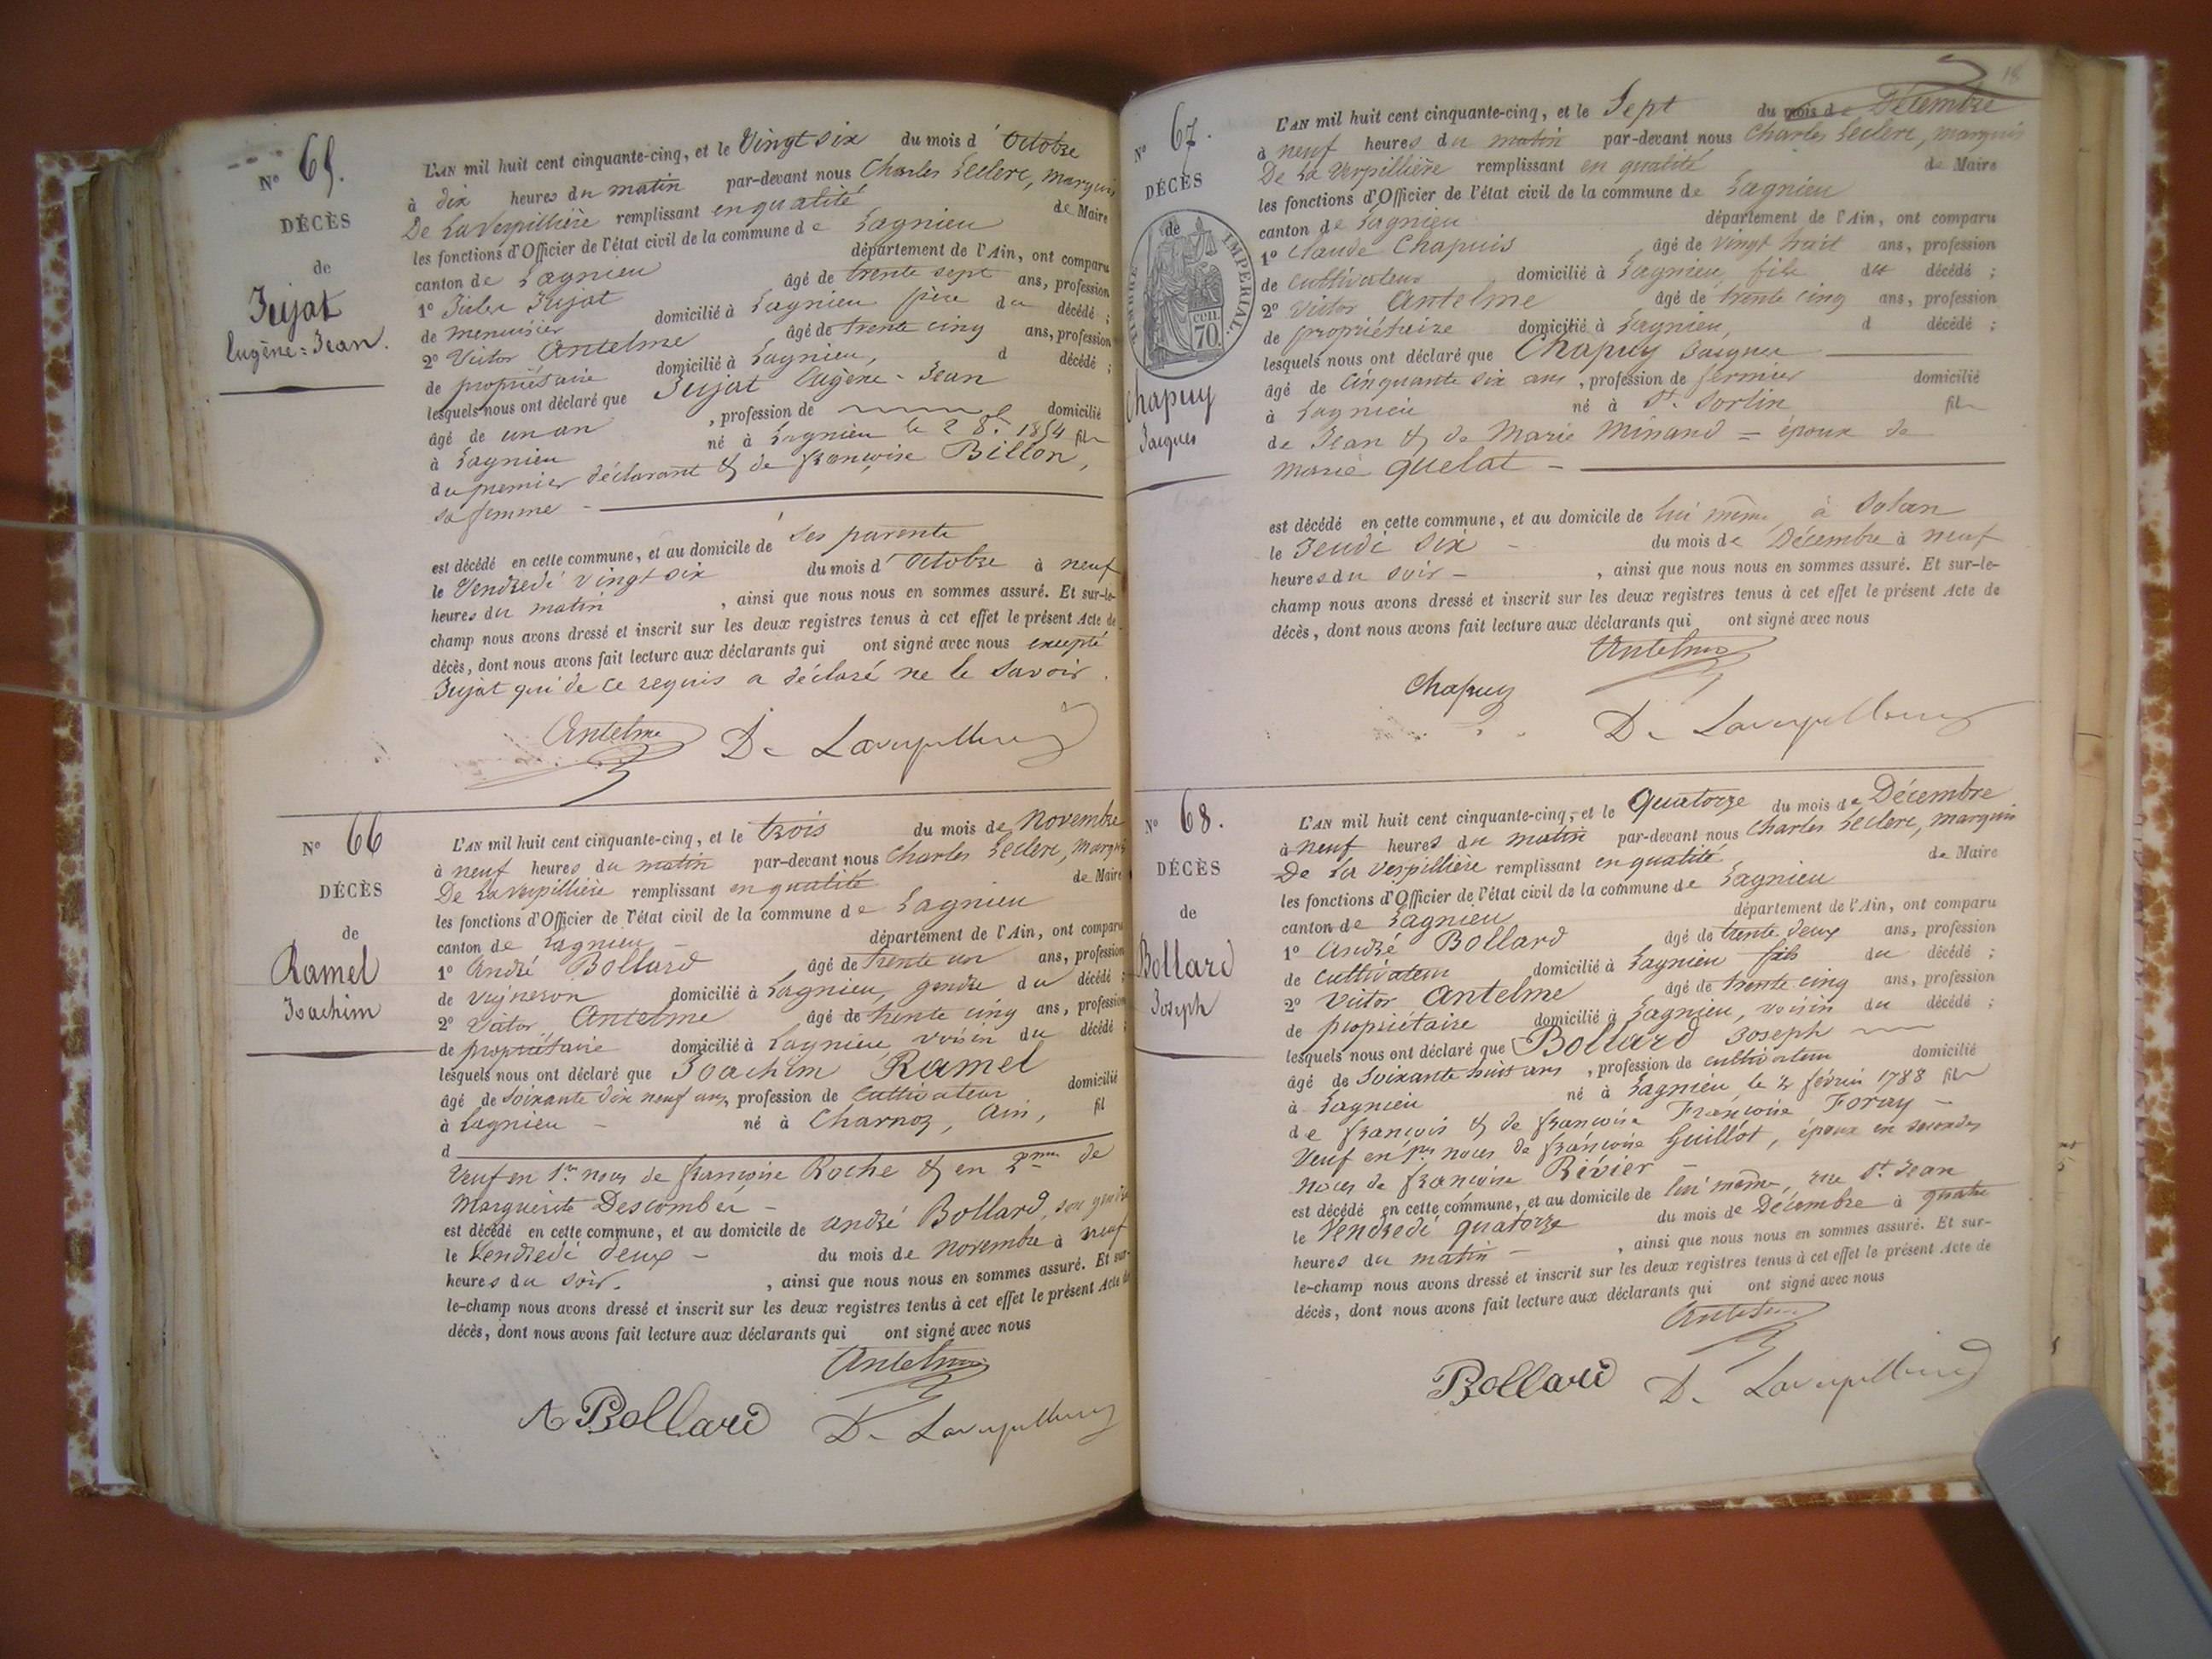 N° 65.
DÉCÈS
de
Jujat
Eugène=Jean.
L'AN mil huit cent cinquante-cinq, et le Vingt six du mois d'Octobre
à dix heures du matin par-devant nous Charles Leclerc, marquis
De La Verpillière remplissant en qualité de Maire
les fonctions d'Officier de l'état civil de la commune de Lagnieu
canton de Lagnieu département de l'Ain, ont comparu
1° Jules Jujat âgé de trente sept ans, profession
de menuisier domicilié à Lagnieu père du décédé ;
2° Victor Antelme âgé de trente cinq ans, profession
de propriétaire domicilié à Lagnieu, d décédé ;
lesquels nous ont déclaré que Jujat Eugène-Jean
âgé de un an , profession de domicilié
à Lagnieu né à Lagnieu le 2 8.bre 1854 fils
du premier déclarant & de françoise Billon,
sa femme -
est décédé en cette commune, et au domicile de ses parents
le Vendredi vingt six du mois d'Octobre à neuf
heures du matin , ainsi que nous nous en sommes assuré. Et sur-le-
champ nous avons dressé et inscrit sur les deux registres tenus à cet effet le présent Acte de
décès, dont nous avons fait lecture aux déclarants qui ont signé avec nous excepté
Jujat qui de ce requis a déclaré ne le savoir.
Antelme De Laverpillière
N° 66
DÉCÈS
de
Ramel
Joachim
L'AN mil huit cent cinquante-cinq, et le trois du mois de Novembre
à neuf heures du matin par-devant nous Charles Leclerc, marquis
De La Verpillière remplissant en qualité de Maire
les fonctions d'Officier de l'état civil de la commune de Lagnieu
canton de Lagnieu - département de l'Ain, ont comparu
1° André Bollard âgé de trente un ans, profession
de vigneron domicilié à Lagnieu, gendre du décédé ;
2° Victor Antelme âgé de trente cinq ans, profession
de propriétaire domicilié à Lagnieu voisin du décédé ;
lesquels nous ont déclaré que Joachim Ramel
âgé de soixante dix neuf ans, profession de cultivateur domicilié
à Lagnieu - né à Charnoz, Ain, fil
d
Veuf en 1res noces de françoise Roche & en 2mes de
Marguerite Descombes -
est décédé en cette commune, et au domicile de andré Bollard, son gendre
le Vendredi deux - du mois de Novembre à neuf
heures du soir. , ainsi que nous nous en sommes assuré. Et sur-
le-champ nous avons dressé et inscrit sur les deux registres tenus à cet effet le présent Acte de
décès, dont nous avons fait lecture aux déclarants qui ont signé avec nous
Antelme
A Bollard De Laverpillière
18
N° 67.
DÉCÈS
de
TIMBRE IMPÉRIAL.
CVII.
70.
Chapuy
Jacques
L'AN mil huit cent cinquante-cinq, et le Sept du mois de Décembre
à neuf heures du matin par-devant nous Charles Leclerc, marquis
De La Verpillière remplissant en qualité de Maire
les fonctions d'Officier de l'état civil de la commune de Lagnieu
canton de Lagnieu département de l'Ain, ont comparu
1° Claude Chapuis âgé de vingt huit ans, profession
de cultivateur domicilié à Lagnieu, fils du décédé ;
2° Victor Antelme âgé de trente cinq ans, profession
de propriétaire domicilié à Lagnieu, d décédé ;
lesquels nous ont déclaré que Chapuy Jacques
âgé de cinquante six ans , profession de fermier domicilié
à Lagnieu né à St. Sorlin fils
de Jean & de Marie Minand = époux de
Marie Quelat -
est décédé en cette commune, et au domicile de lui même, à Solan
le Jeudi six - du mois de Décembre à neuf
heures du soir - , ainsi que nous nous en sommes assuré. Et sur-le-
champ nous avons dressé et inscrit sur les deux registres tenus à cet effet le présent Acte de
décès, dont nous avons fait lecture aux déclarants qui ont signé avec nous
Antelme
Chapuy
De Laverpillière
N° 68.
DÉCÈS
de
Bollard
Joseph
L'AN mil huit cent cinquante-cinq, et le Quatorze du mois de Décembre
à neuf heures du matin par-devant nous Charles Leclerc, marquis
De La Verpillière remplissant en qualité de Maire
les fonctions d'Officier de l'état civil de la commune de Lagnieu
canton de Lagnieu département de l'Ain, ont comparu
1° André Bollard âgé de trente deux ans, profession
de cultivateur domicilié à Lagnieu fils du décédé ;
2° Victor Antelme âgé de trente cinq ans, profession
de propriétaire domicilié à Lagnieu, voisin du décédé ;
lesquels nous ont déclaré que Bollard Joseph
âgé de soixante huit ans , profession de cultivateur domicilié
à Lagnieu né à Lagnieu, le 2 février 1788 fils
de françois & de françoise Françoise Foray -
Veuf en 1res noces de françoise Guillot, époux en secondes
noces de françoise Rivier -
est décédé en cette commune, et au domicile de lui même, rue St. Jean
le Vendredi quatorze du mois de Décembre à quatre
heures du matin - , ainsi que nous nous en sommes assuré. Et sur-
le-champ nous avons dressé et inscrit sur les deux registres tenus à cet effet le présent Acte de
décès, dont nous avons fait lecture aux déclarants qui ont signé avec nous
Antelme
Bollard De Laverpillière